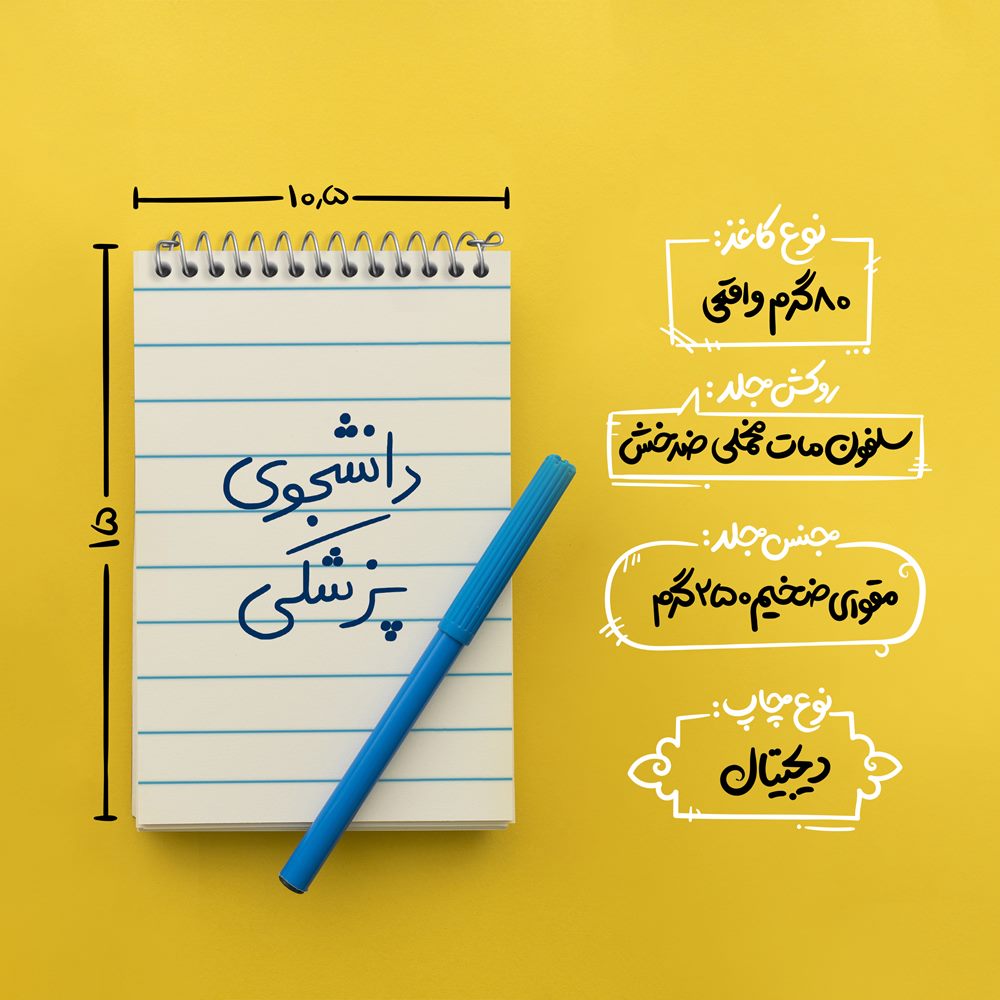 ۱۰,۵
۱۵
دانشجوی
پزشکی
نوع کاغذ:
۸۰گرم واقعی
روکش جلد:
سلفون مات مخملی ضدخش
جنس جلد:
مقوای ضخیم ۲۵۰گرم
نوع چاپ:
دیجیتال